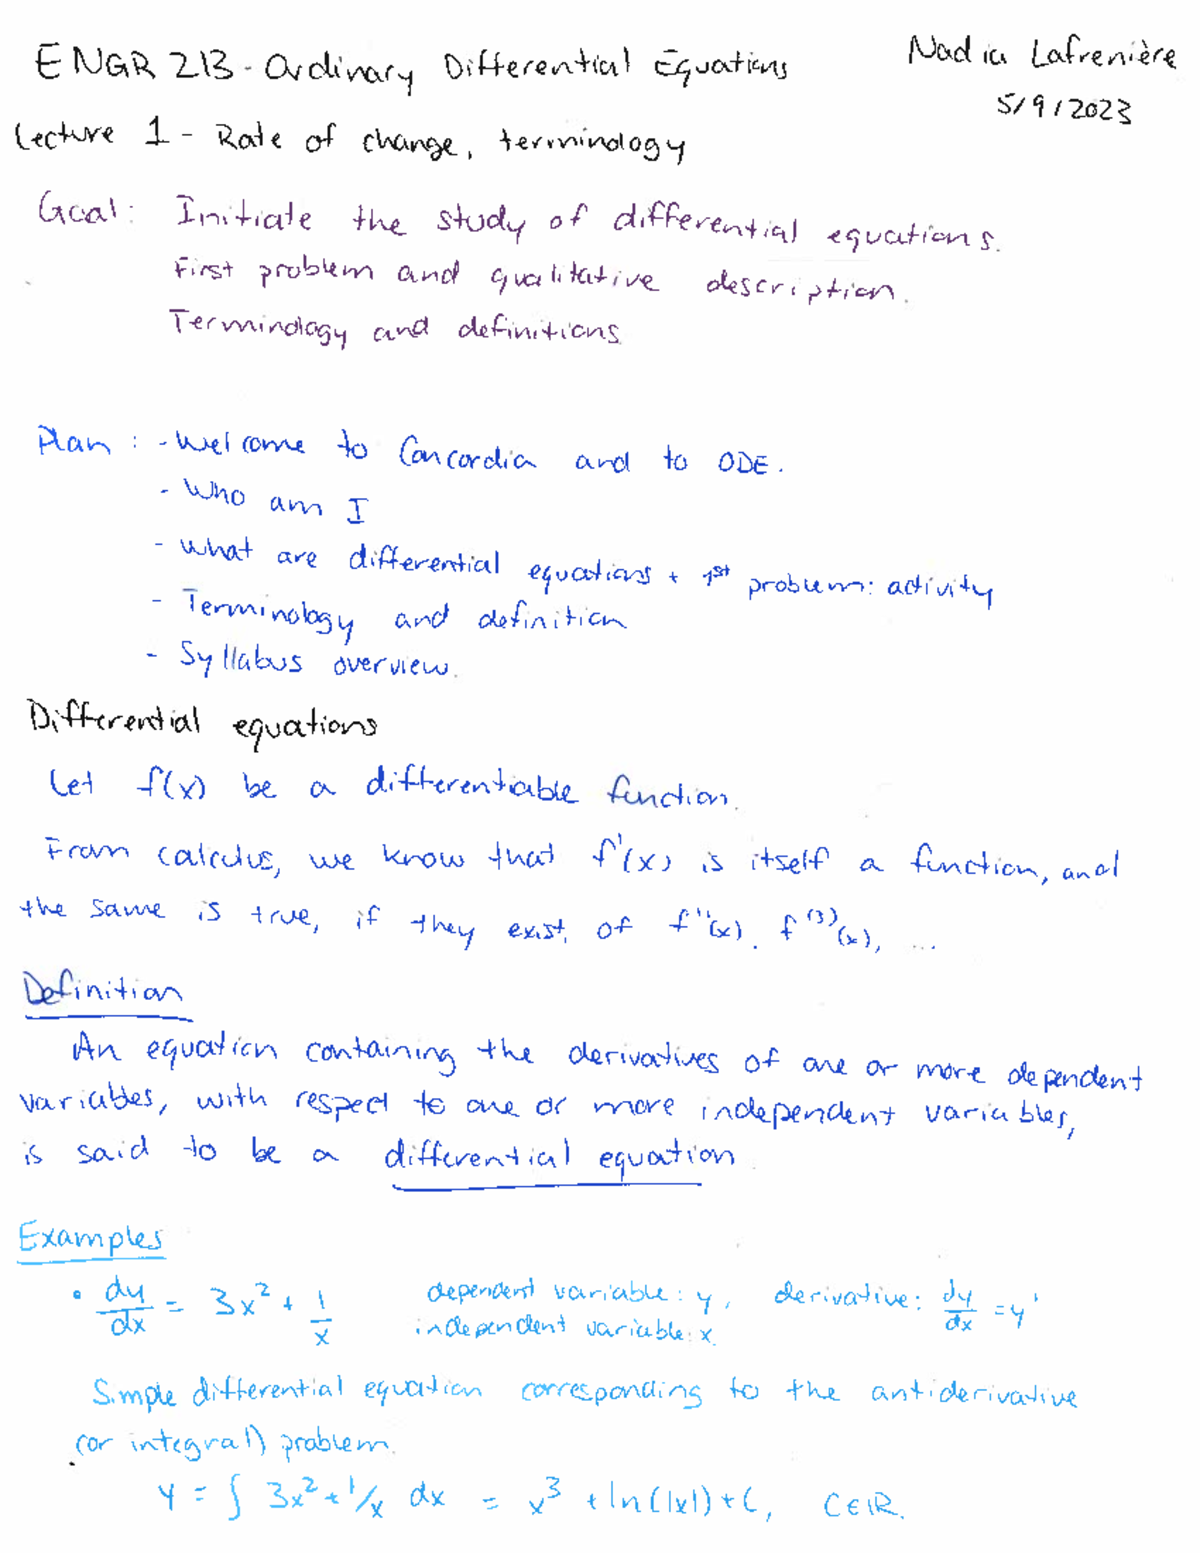 ENGR 213 - Ordinary Differential Equations
Nadia Lafrenière
5/9/2023
Lecture 1 - Rate of change, terminology
Goal: Initiate the study of differential equations.
First problem and qualitative description.
Terminology and definitions.
Plan: - Welcome to Concordia and to ODE.
- Who am I
- What are differential equations + 1st problem: activity
- Terminology and definition
- Syllabus overview.
Differential equations
Let f(x) be a differentiable function.
From calculus, we know that f'(x) is itself a function, and
the same is true, if they exist, of f''(x), f⁽³⁾(x), ...
Definition
An equation containing the derivatives of one or more dependent
variables, with respect to one or more independent variables,
is said to be a differential equation
Examples
• dy/dx = 3x² + 1/x dependent variable: y, derivative: dy/dx = y'
independent variable: x.
Simple differential equation corresponding to the antiderivative
(or integral) problem.
y = ∫ 3x² + 1/x dx = x³ + ln(|x|) + C, C∈ℝ.